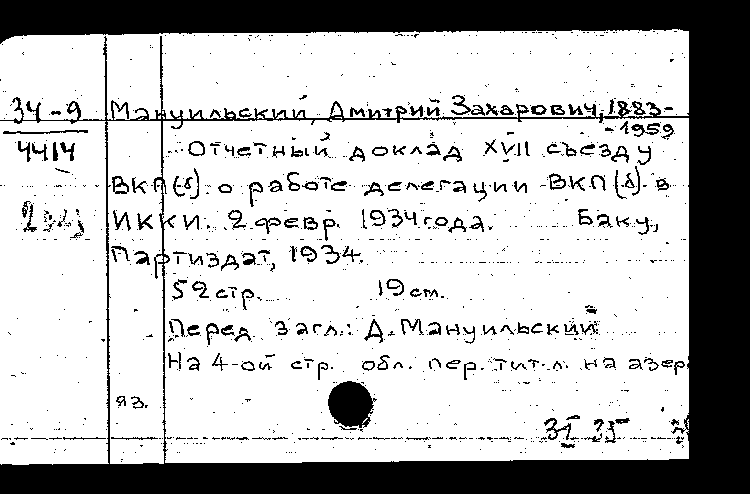 34-9 Мануильский, Дмитрий Захарович, 1883-
-1959
4414 Отчетный доклад XVII съезду
ВКП(б) о работе делегации ВКП(б) в
ИККИ. 2 февр. 1934 года. Баку,
Партиздат, 1934.
52 стр. 19 см.
Перед загл.: Д. Мануильский
На 4-ой стр. обл. пер. тит. л. на азерб
яз.
35